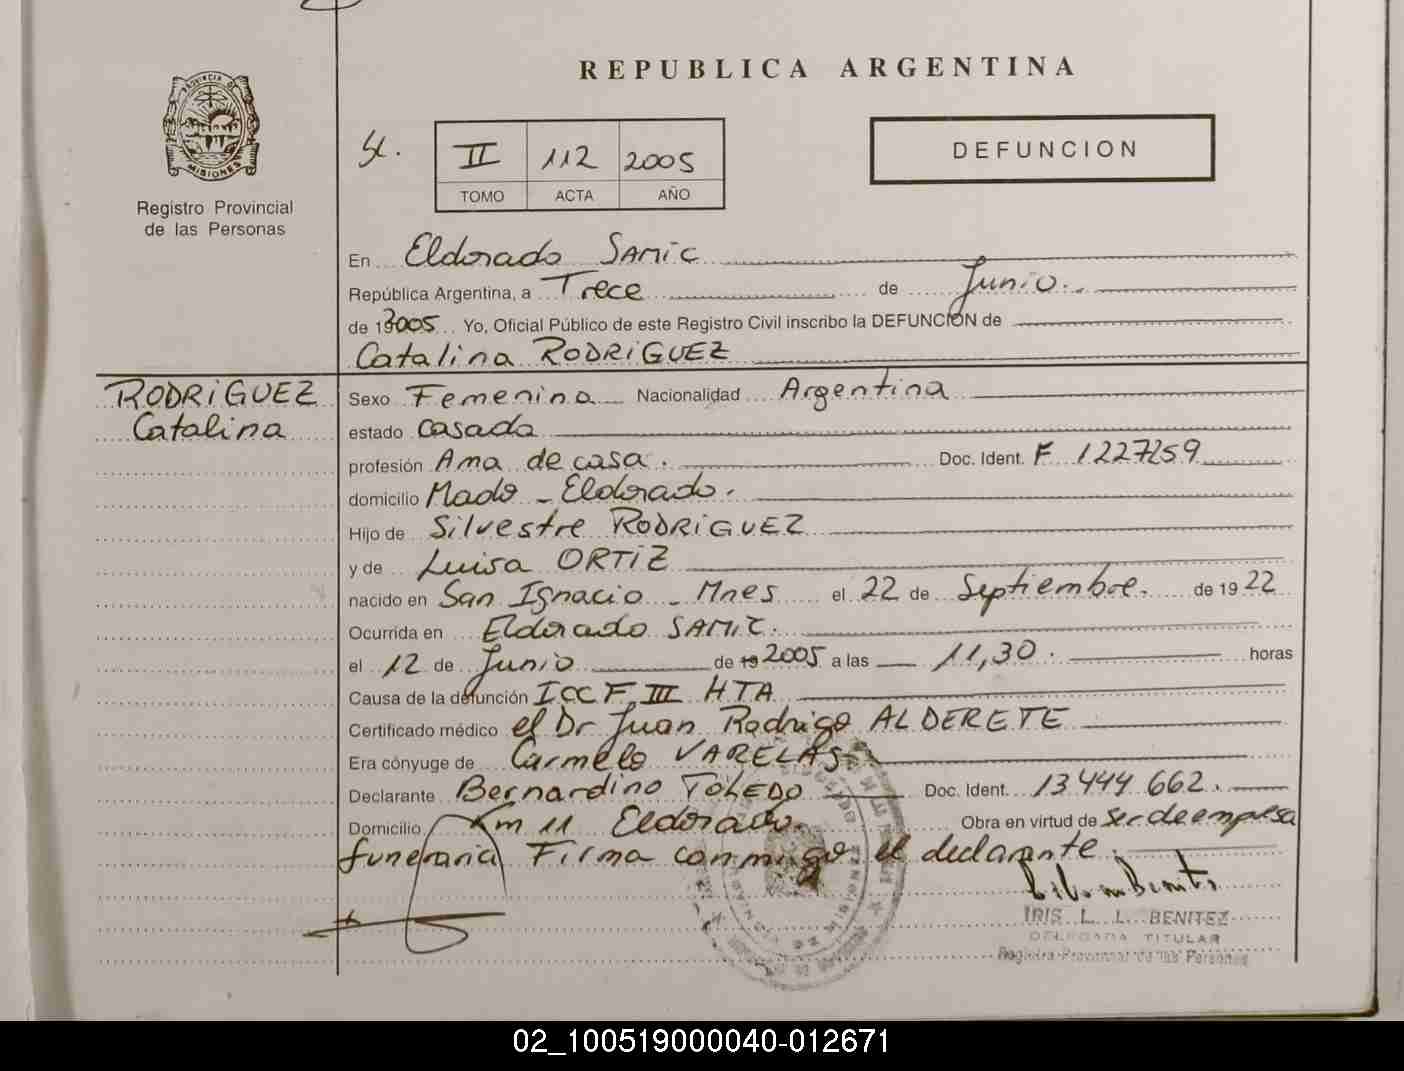 REPUBLICA ARGENTINA
PROVINCIA DE
MISIONES
Registro Provincial
de las Personas
II 112 2005
TOMO ACTA AÑO
DEFUNCION
En Eldorado SAMIC
República Argentina, a Trece de Junio.
de 19 2005 Yo, Oficial Público de este Registro Civil inscribo la DEFUNCIÓN de
Catalina RODRIGUEZ
RODRIGUEZ
Catalina
Sexo Femenina Nacionalidad Argentina
estado casada
profesión Ama de casa. Doc. Ident. F 1227259
domicilio Mado - Eldorado.
Hijo de Silvestre RODRIGUEZ
y de Luisa ORTIZ
nacido en San Ignacio - Mnes el 22 de Septiembre. de 1922
Ocurrida en Eldorado SAMIC.
el 12 de Junio de 19 2005 a las 11,30. horas
Causa de la defunción ICC F III HTA
Certificado médico el Dr Juan Rodrigo ALDERETE
Era cónyuge de Carmelo VARELAS
Declarante Bernardino TOLEDO Doc. Ident. 13444662.
Domicilio Km 11 Eldorado. Obra en virtud de ser de empresa
funeraria Firma conmigo el declarante.
IRIS L. L. BENITEZ
DELEGADA TITULAR
Registro Provincial de las Personas
02_100519000040-012671